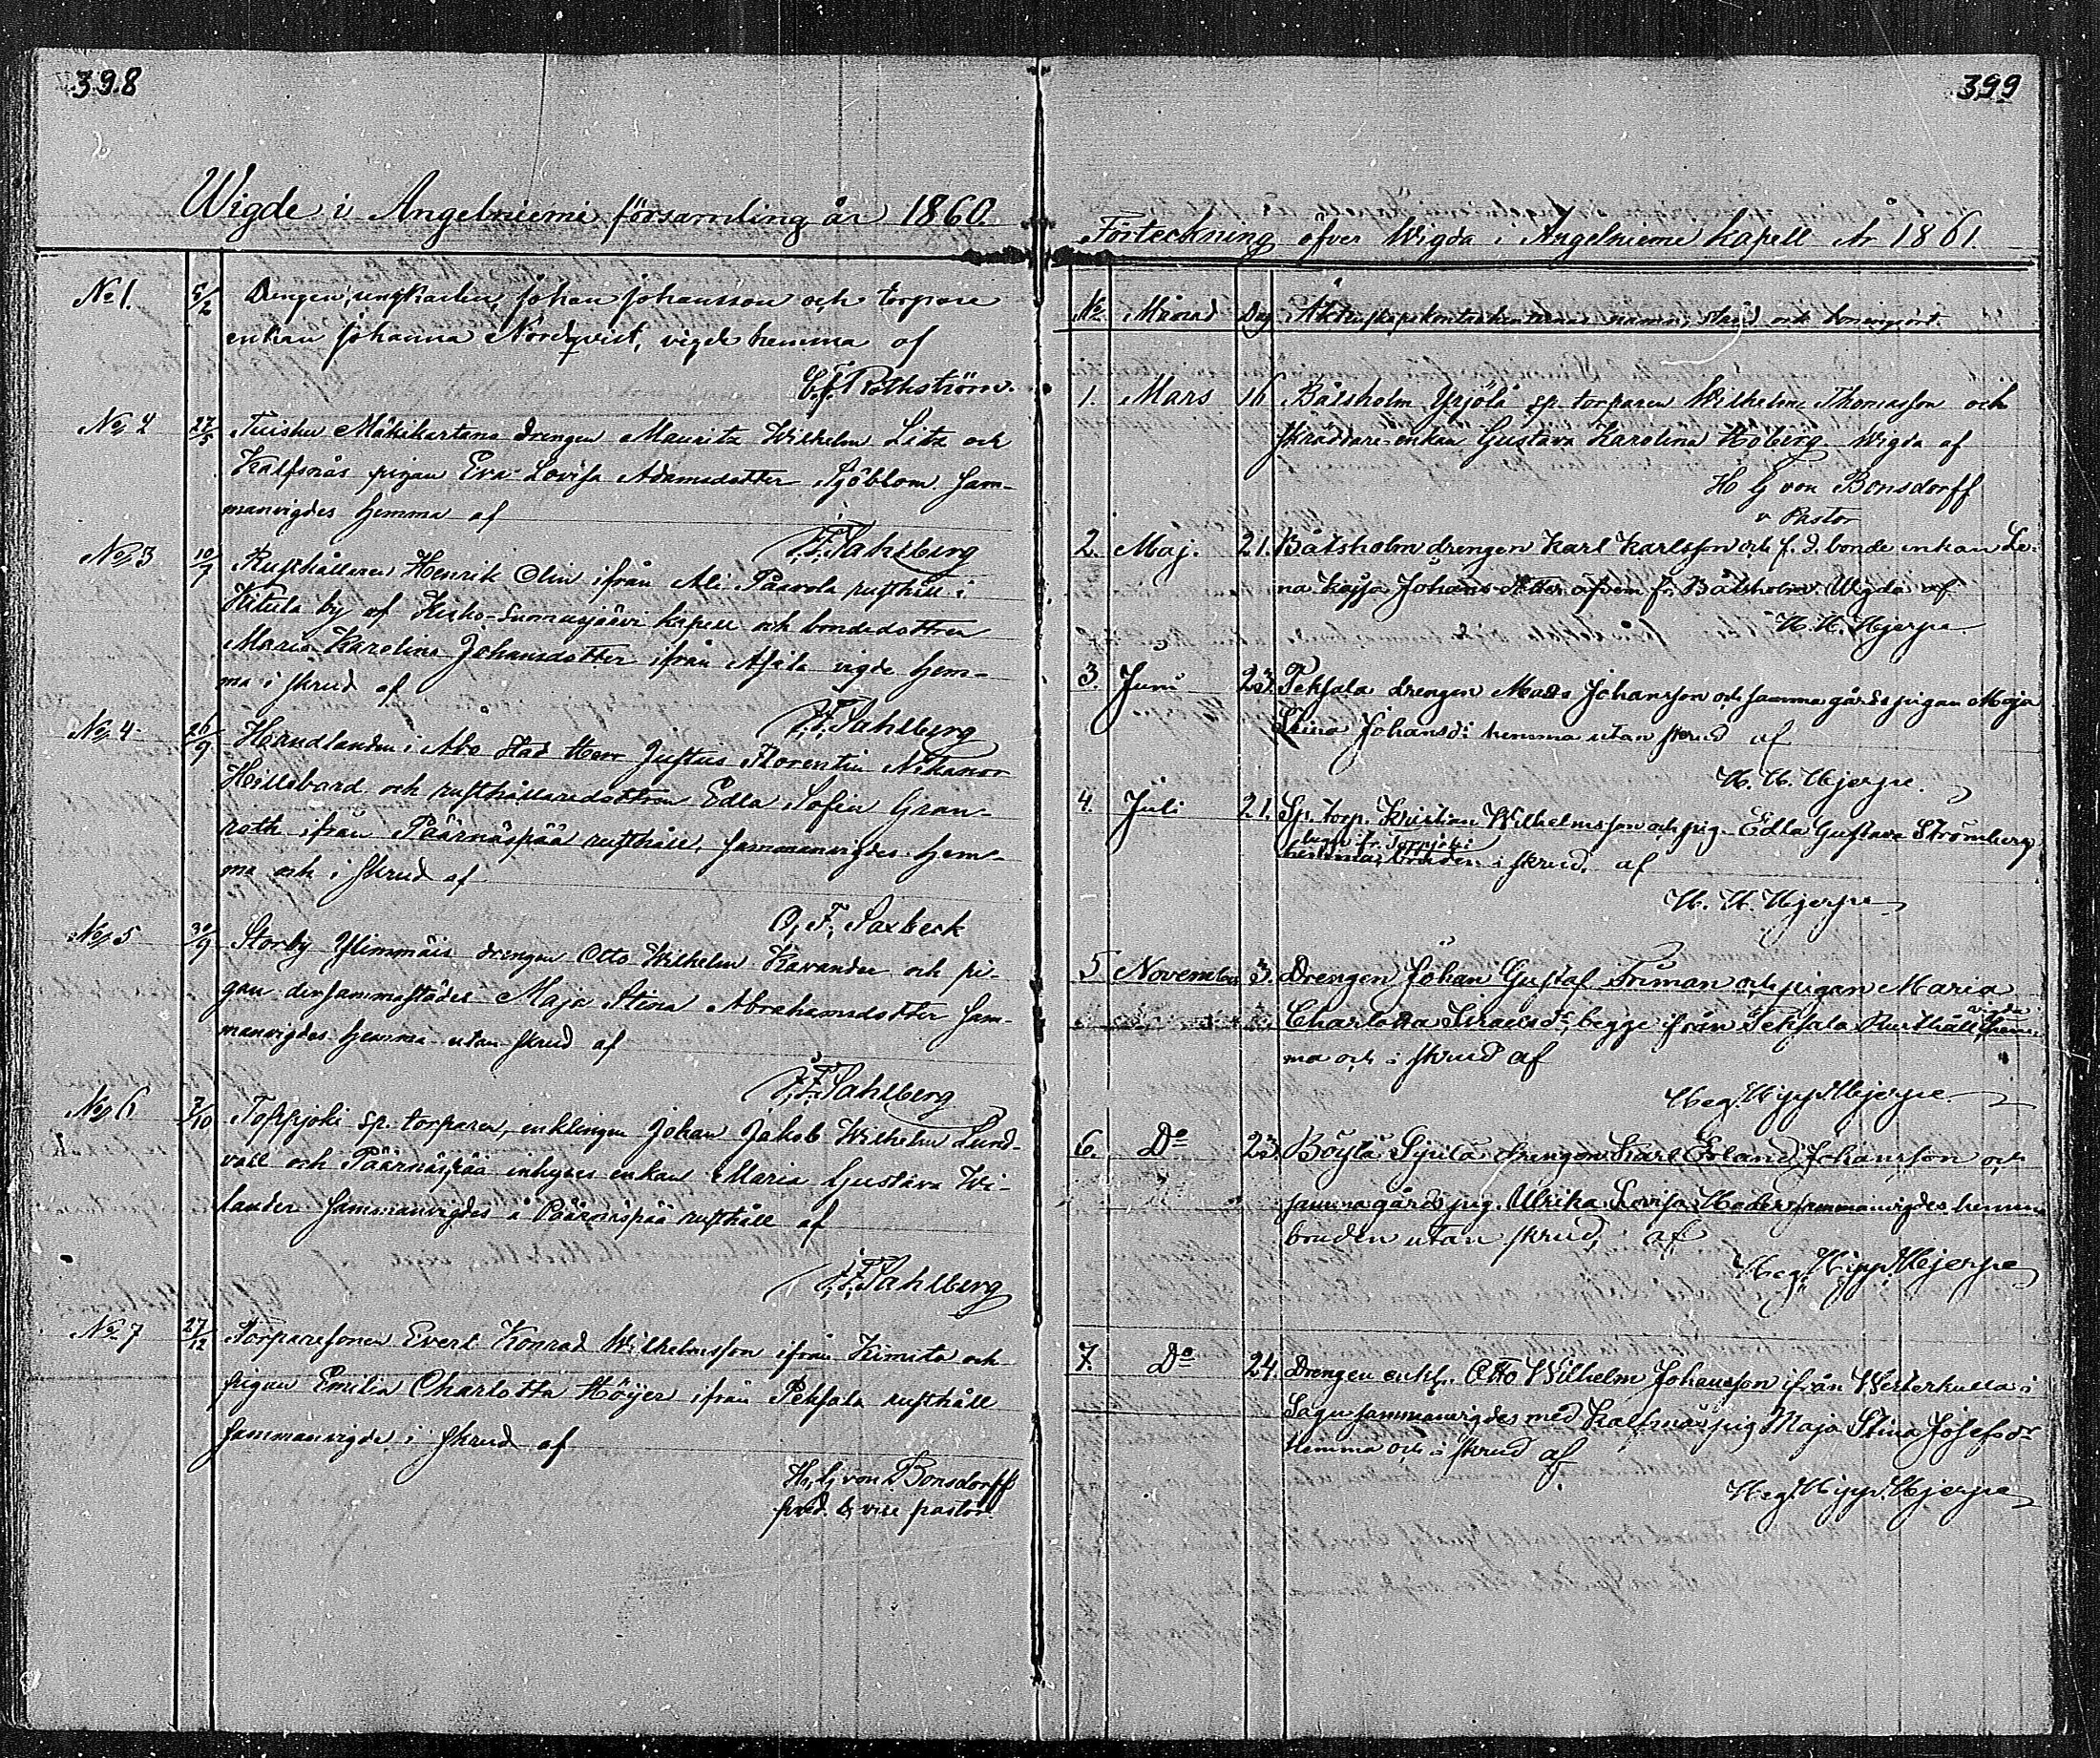 398
Wigde i Angelniemi församling år 1860.
No 1. 5/2 Drengen, ungkarlen, Johan Johansson och torpare
enkan Johanna Nordqvist, vigde hemma af
C. J. Rothström.
No 2 27/5 Tuisku Mäkikartano drengen Mauritz Wilhelm Litz och
Kalfsnäs pigan Eva Lovisa Adamsdotter Sjöblom sam-
manvigdes hemma af
F. F. Sahlberg
No 3 10/7 Rusthållaren Henrik Olin ifrån Ali Påavola rusthåll i
Kitula by af Kisko-Suomusjärvi kapell och bondedottren
Maria Karolina Johansdotter ifrån Asila vigde hem-
ma i skrud af
F. F. Sahlberg
No 4 26/9 Handlanden i Åbo stad Herr Justus Florentin Nikanor
Hillebard och rusthållaredottren Edla Sofia Gran-
roth ifrån Päärnäspää rusthåll, sammanvigdes hem-
ma och i skrud af
O. F. Saxbeck
No 5 30/9 Storby Ylimmäis drengen Otto Wilhelm Kavander och pi-
gan dersammastädes Maja Stina Abrahamsdotter sam-
manvigdes hemma utan skrud af
F. F. Sahlberg
No 6 7/10 Toppjoki sp. torparen, enklingen Johan Jakob Wilhelm Lund-
vall och Päärnäspää inhyses enkan Maria Gustava Wi-
lander sammanvigdes å Päärnäspää rusthåll af
F. F. Sahlberg
No 7 27/12 Torparesonen Evert Konrad Wilhelmsson ifrån Kimito och
pigan Emilia Charlotta Höijer ifrån Peksala rusthåll
sammanvigde i skrud af
H. G. von Bonsdorff
pred. & vice pastor.
399
Förteckning öfver Wigda i Angelniemi kapell År 1861.
No Månad Dag Äktenskapskontrahenternas namn, stånd och boningsort.
1. Mars 16 Båtsholm Yrjölä sp. torparen Wilhelm Thomasson och
skräddare-enkan Gustava Karolina Hoberg. Wigda af
H G von Bonsdorff
v Pastor
2. Maj. 21. Båtsholm drengen Karl Karlsson och f. d. bonde enkan Le-
na Kajsa Johansdotter äfven fr. Båtsholm. Wigda af
H. H. Hjerpe.
3. Juni 23. Peksala drengen Mats Johansson och samma gårds pigan Maja
Stina Johansd: hemma utan skrud af
H. H. Hjerpe.
4. Juli 21. Sp. torp. Kristian Wilhelmsson och pig. Edla Gustava Strömberg
begge fr. Toppjoki
hemma, bruden i skrud. af
H. H. Hjerpe
5 November 3. Drengen Johan Gustaf Friman och pigan Maria
Charlotta Israelsdr begge ifrån Peksala Rusthåll vigde hem-
ma och i skrud af
Heg. Hipp. Hjerpe.
6. Do 23. Böylä Sipilä drengen Karl Erland Johansson och
samma gårds pig. Ulrika Lovisa Heder sammanvigdes hemma
bruden utan skrud, af
Heg. Hipp. Hjerpe
7. Do 24. Drengen enkl. Otto Wilhelm Johansson ifrån Westerkulla i
Sagu sammanvigdes med Kalfsnäs pig Maja Stina Josefsdr
hemma och i skrud af
Heg. Hipp. Hjerpe